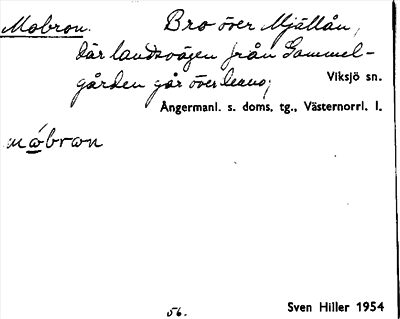 Mobron. Bro över Mjällån,
där landsvägen från Gammel-
gården går över denna;
Viksjö sn.
Ångermanl. s. doms. tg., Västernorrl. l.
mǿbrωn
56.
Sven Hiller 1954